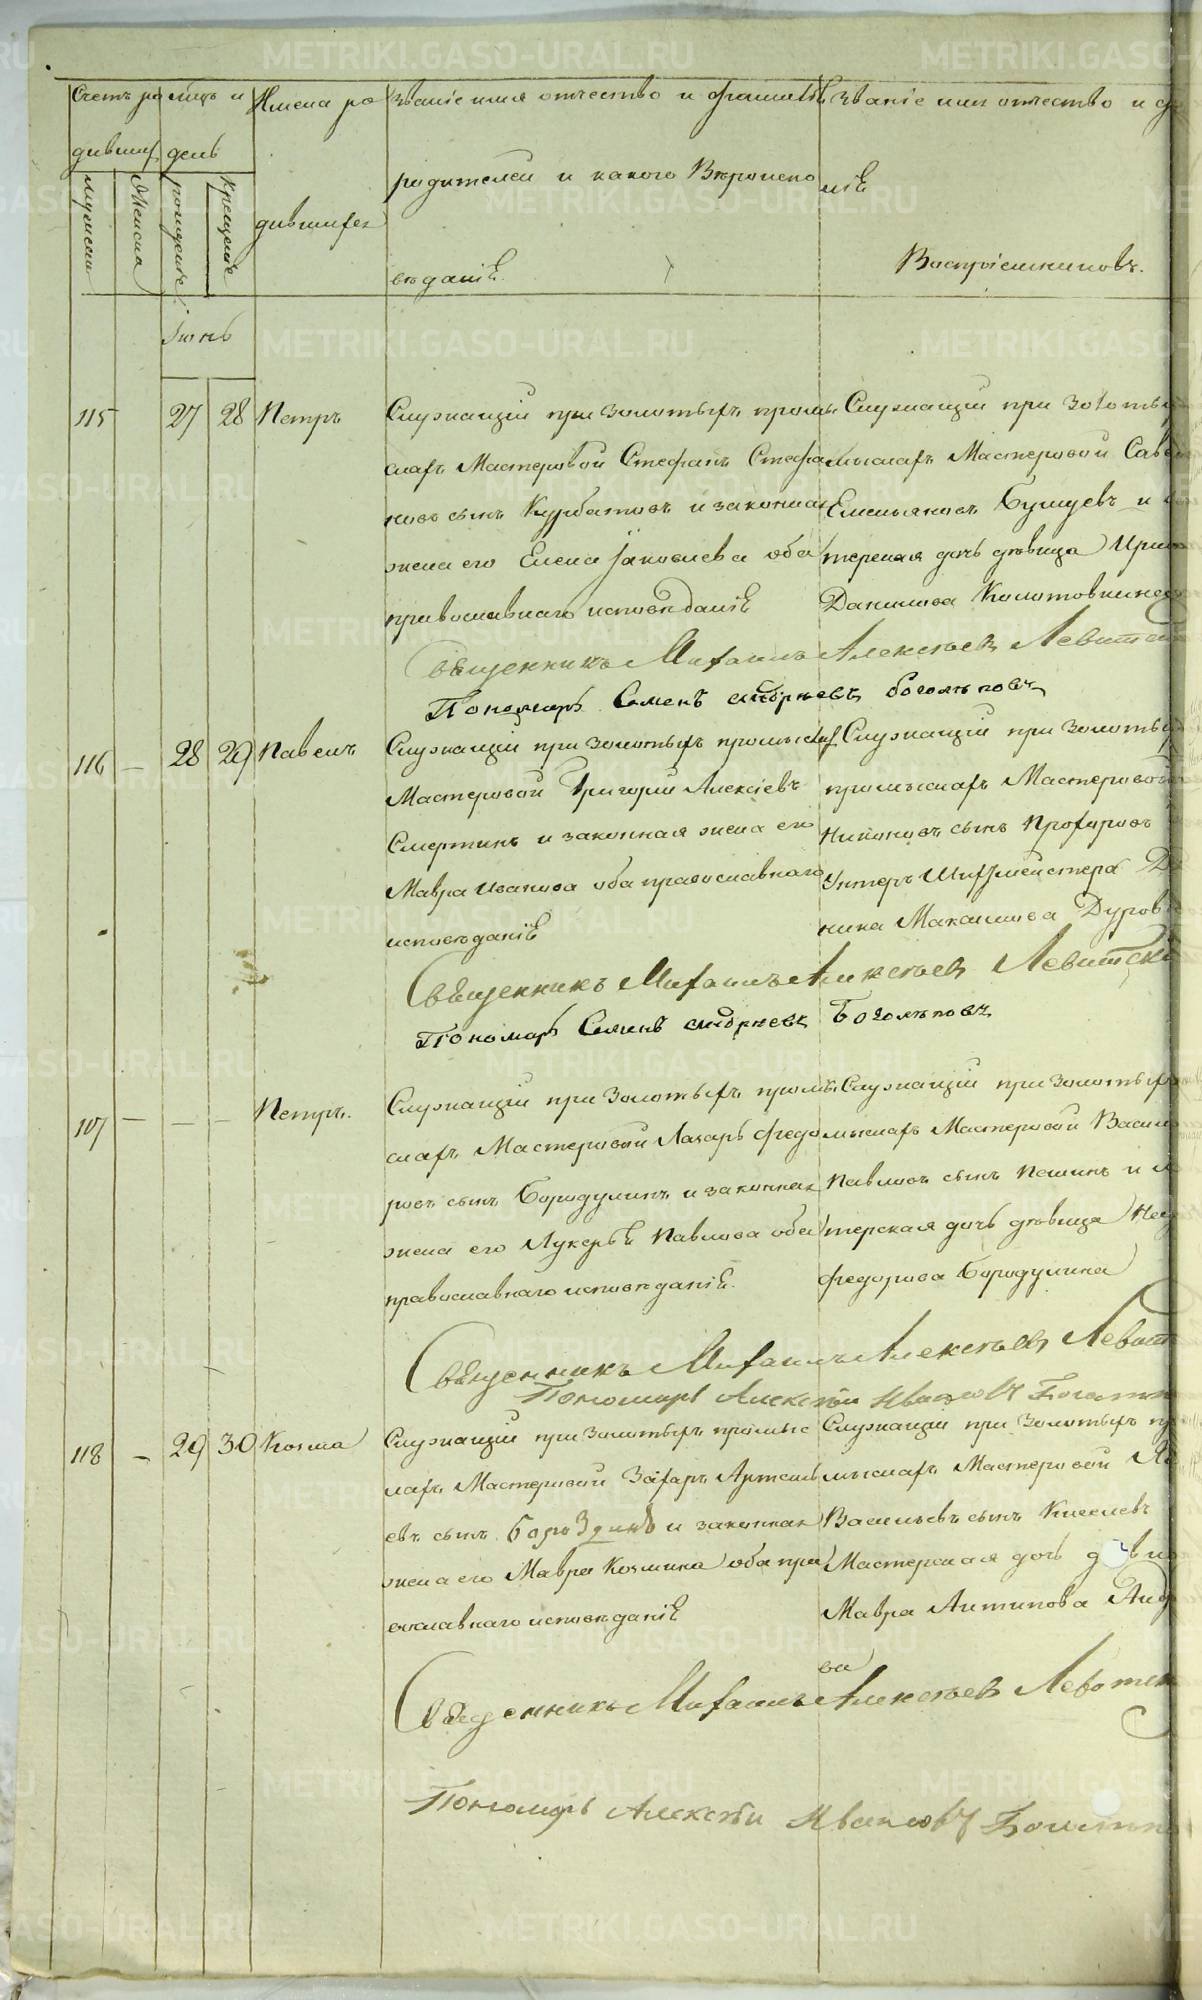 Счетъ ро
дивших
мужеска
женска
месяцъ и
день
рожденiе
крещенiе
Имена ро
дившихся
Званiе имя отчество и фамилiѣ
родителей и какого Вѣроиспо
вѣданiѣ
Званiе имя отчество и
лiѣ
Воспрiемниковъ.
Iюнь
115
27
28
Петръ
Служащiй при золотыхъ промы
слахъ Мастеровой Стефанъ Стефа
новъ сынъ Курбатовъ и законная
жена его Елена Iаковлева оба
православнаго исповѣданiѣ
Служащiй при золоты
мыслахъ Мастеровой
Емельяновъ Бушуевъ и
терская дочь дѣвица
Данилова
Священникъ Михаилъ Алексѣевъ
Пономарь Семенъ Андрѣевъ Боголѣповъ
116
—
28
29
Павелъ
Служащiй при золотыхъ промыслах
Мастеровой Григорiй Алексiевъ
Смертинъ и законная жена его
Мавра Иванова оба православнаго
исповѣданiѣ
Служащiй при золоты
промыслахъ Мастеровой
Никоновъ сынъ Прохоровъ
Унтеръ Шихтмейстера
Максимова
Священникъ Михаилъ Алексѣевъ
Пономарь Семенъ Андрѣевъ Боголѣповъ
107
—
—
—
Петръ.
Служащiй при золотыхъ промы
слахъ Мастеровой Лазарь Федо
ровъ сынъ Бородулинъ и законная
жена его Лукерьѣ Павлова оба
православнаго исповѣданiѣ.
Служащiй при золотых
мыслахъ Мастеровой
Павловъ сынъ Пешинъ и
терская дочь дѣвица
Федорова Бородулина
Священникъ Михаилъ Алексѣевъ
Пономарь Алексѣй Ивановъ
118
—
29
30
Козма
Служащiй при золотыхъ промыс
лахъ Мастеровой Захаръ Артемь
евъ сынъ Бороздинъ и законная
жена его Мавра Козмина оба пра
вославнаго исповѣданiѣ
Служащiй при золотыхъ
мыслахъ Мастеровой
Васильевъ сынъ Киселевъ
Мастерская дочь
Мавра Антипова
ва
Священникъ Михаилъ Алексѣевъ
Пономарь Алексѣй Ивановъ
METRIKI.GASO-URAL.RU